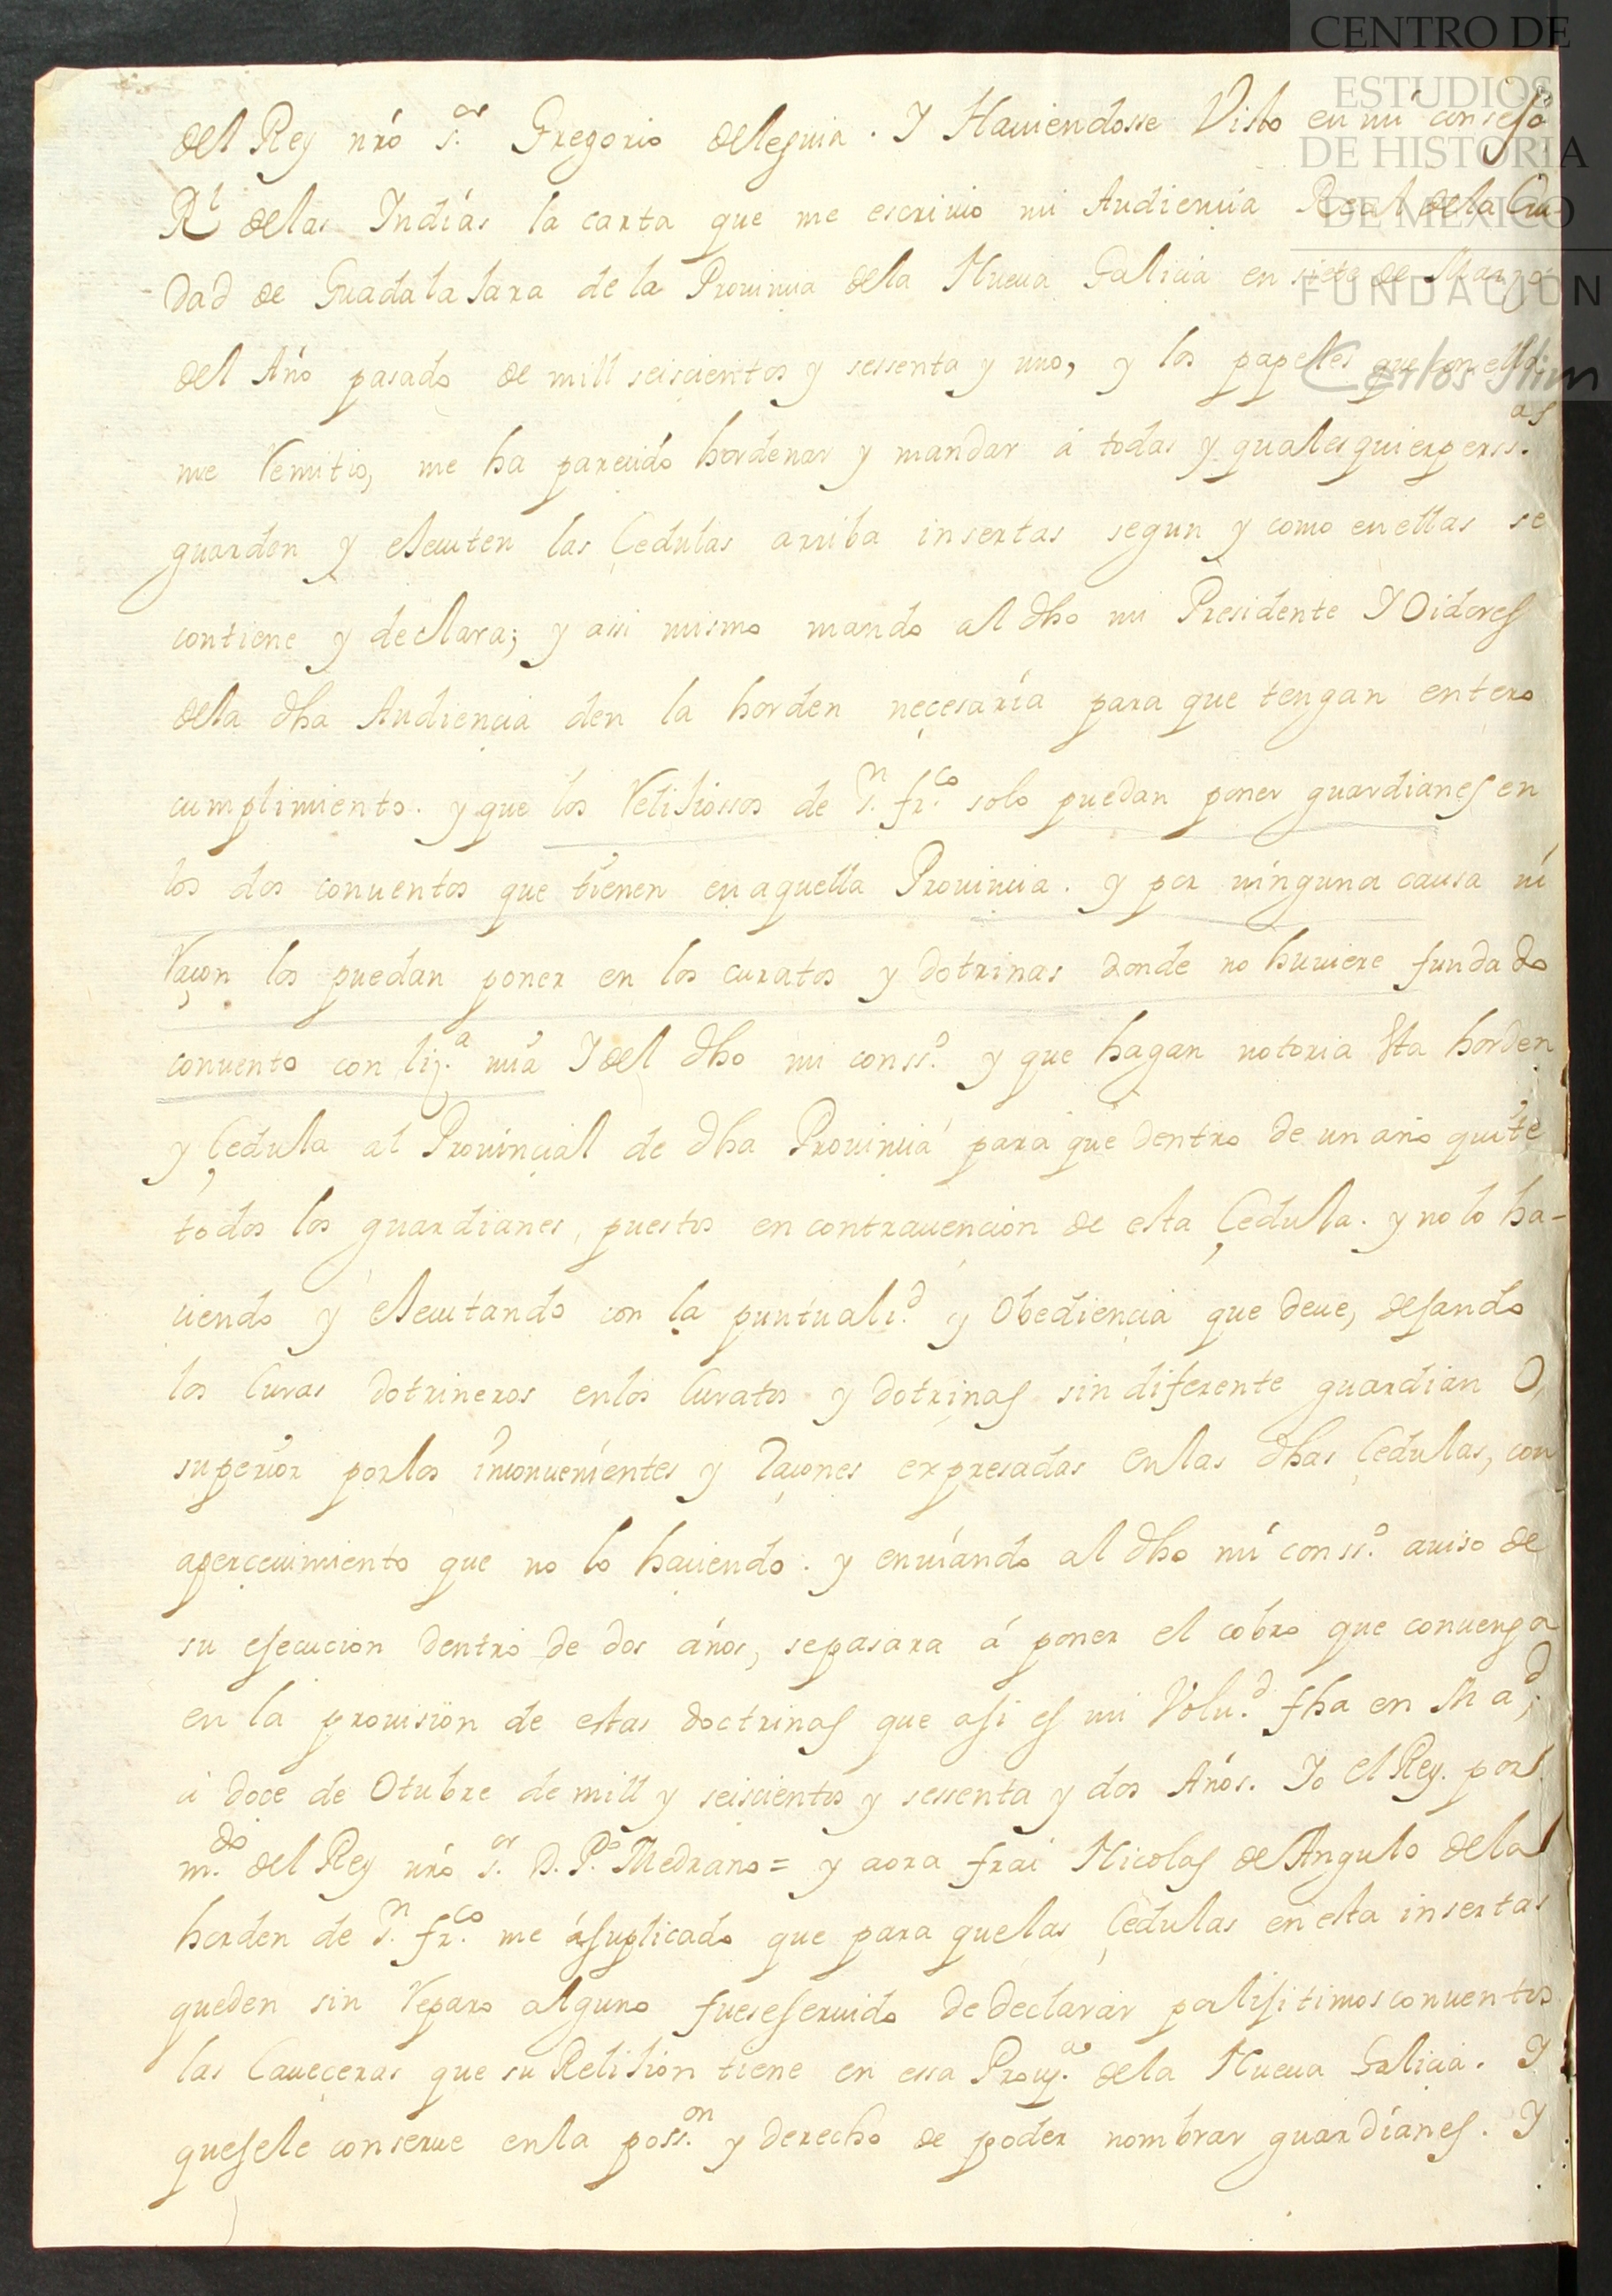 CENTRO DE
ESTUDIOS
DE HISTORIA
DE MEXICO
FUNDACION
Carlos Slim
del Rey nrõ s.or Gregorio deleguia. I Hauiendosse Visto en mi consejo
Rl delas Indías la carta que me escriuio mi Audiencia Real dela Ciu-
dad de Guadalajara de la Prouincia dela Nueua Galicia en siete de Março
del Año pasado de mill seiscientos y sessenta y uno, y los papeles que con ella
me Remitio, me ha parecido hordenar y mandar á todas y qualesquier perss.as
guarden y eJecuten las Çedulas arriba insertas segun y como en ellas se
contiene y declara; y assi mismo mando al dho mi Presidente I Oidores
dela dha Audiencia den la horden neçesaría para que tengan entero
cumplimiento. y que los ReliJiossos de S.n fr.co solo puedan poner guardianes en
los dos conuentos que tienen en aquella Prouincia. y por ninguna causa ni
Raçon los puedan poner en los curatos y dotrinas donde no huuiere fundado
conuento con liz.a mia I del dho mi conss.o y que hagan notoria Esta horden
y Çedula al Prouincial de dha Prouincia para que dentro de un año quite
todos los guardianes, puestos en contrauencion de esta Çedula. y no lo ha-
ciendo y eJecutando con la puntuali.d y Obediencia que deue, dejando
los Curas dotrineros en los Curatos y dotrinas sin diferente guardian O,
superior por los inconuenientes y Raçones expresadas en las dhas Çedulas, con
aperceuimiento que no lo haciendo. y enuíando al dho mi conss.o auiso de
su ejecucion dentro de dos años, se pasara á poner el cobro que conuenga
en la prouision de estas doctrinas que asi es mi Volu.d fha en Mad;
á doce de Otubre de mill y seiscientos y sessenta y dos Años. Io el Rey. por
m.do del Rey nrõ s.or D. P.o Medrano = y aora frai Nicolas de Angulo dela
horden de S.n fr.co me á suplicado que para que las Çedulas en esta insertas
queden sin Reparo alguno fuese seruido de declarar por lijitimos conuentos
las Caueçeras que su ReliJion tiene en essa Prou.a dela Nueua Galicia. I
que se le conserue en la poss.on y derecho de poder nombrar guardíanes. I